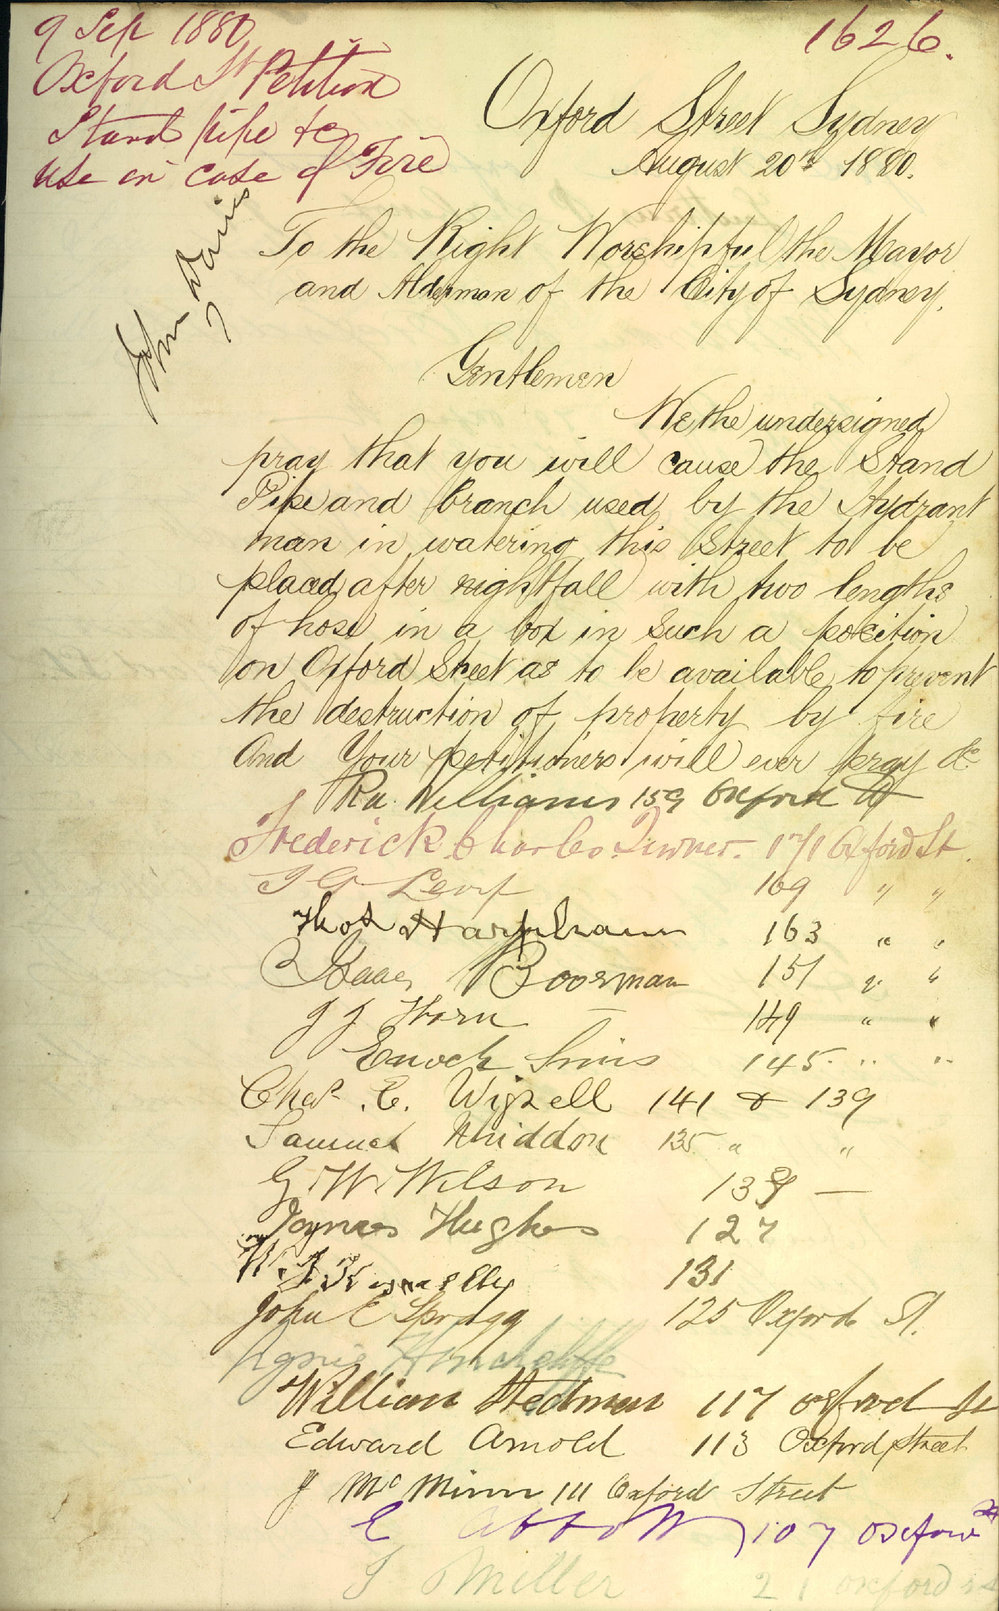 9 Sep 1880
Oxford St Petition
Stand pipe &c
use in case of Fire
1626.
John Davies
Oxford Street Sydney
August 20th 1880.
To the Right Worshipful the Mayor
and Aldermen of the City of Sydney.
Gentlemen
We the undersigned
pray that you will cause the Stand
Pipe and branch used by the Hydrant
man in watering this Street to be
placed after nightfall with two lengths
of hose in a box in such a position
on Oxford Street as to be available to prevent
the destruction of property by fire
And Your petitioners will ever pray &c
Williams 159 Oxford St
Frederick Charles Turner. 171 Oxford St.
Levy 169 " "
Thos 163 " "
Isaac Boorman 151 " "
J J Horn 149 " "
Enoch Sims 145 " "
Chas. E. Wigzell 141 & 139
Samuel Whiddon 135 " "
G. W. Wilson
James Hughes 127
131
John E Spragg 125 Oxford St.
Hinchcliffe
William Stedman 117 Oxford St
Edward Arnold 113 Oxford Street
J McMinn 111 Oxford Street
E Abbott 107 Oxford St
Miller 21 Oxford St